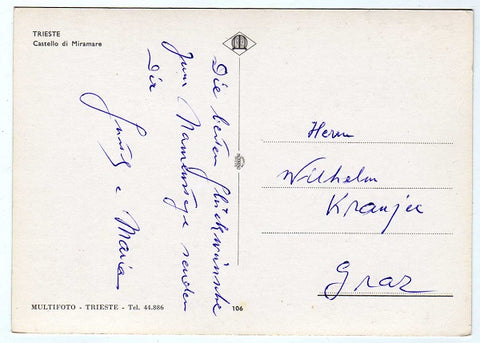 TRIESTE
Castello di Miramare
Die besten Glückwünsche
zum Namenstage senden
Dir
e Maria
Herrn
Wilhelm
Kranjec
Graz
MULTIFOTO - TRIESTE - Tel. 44.886
106